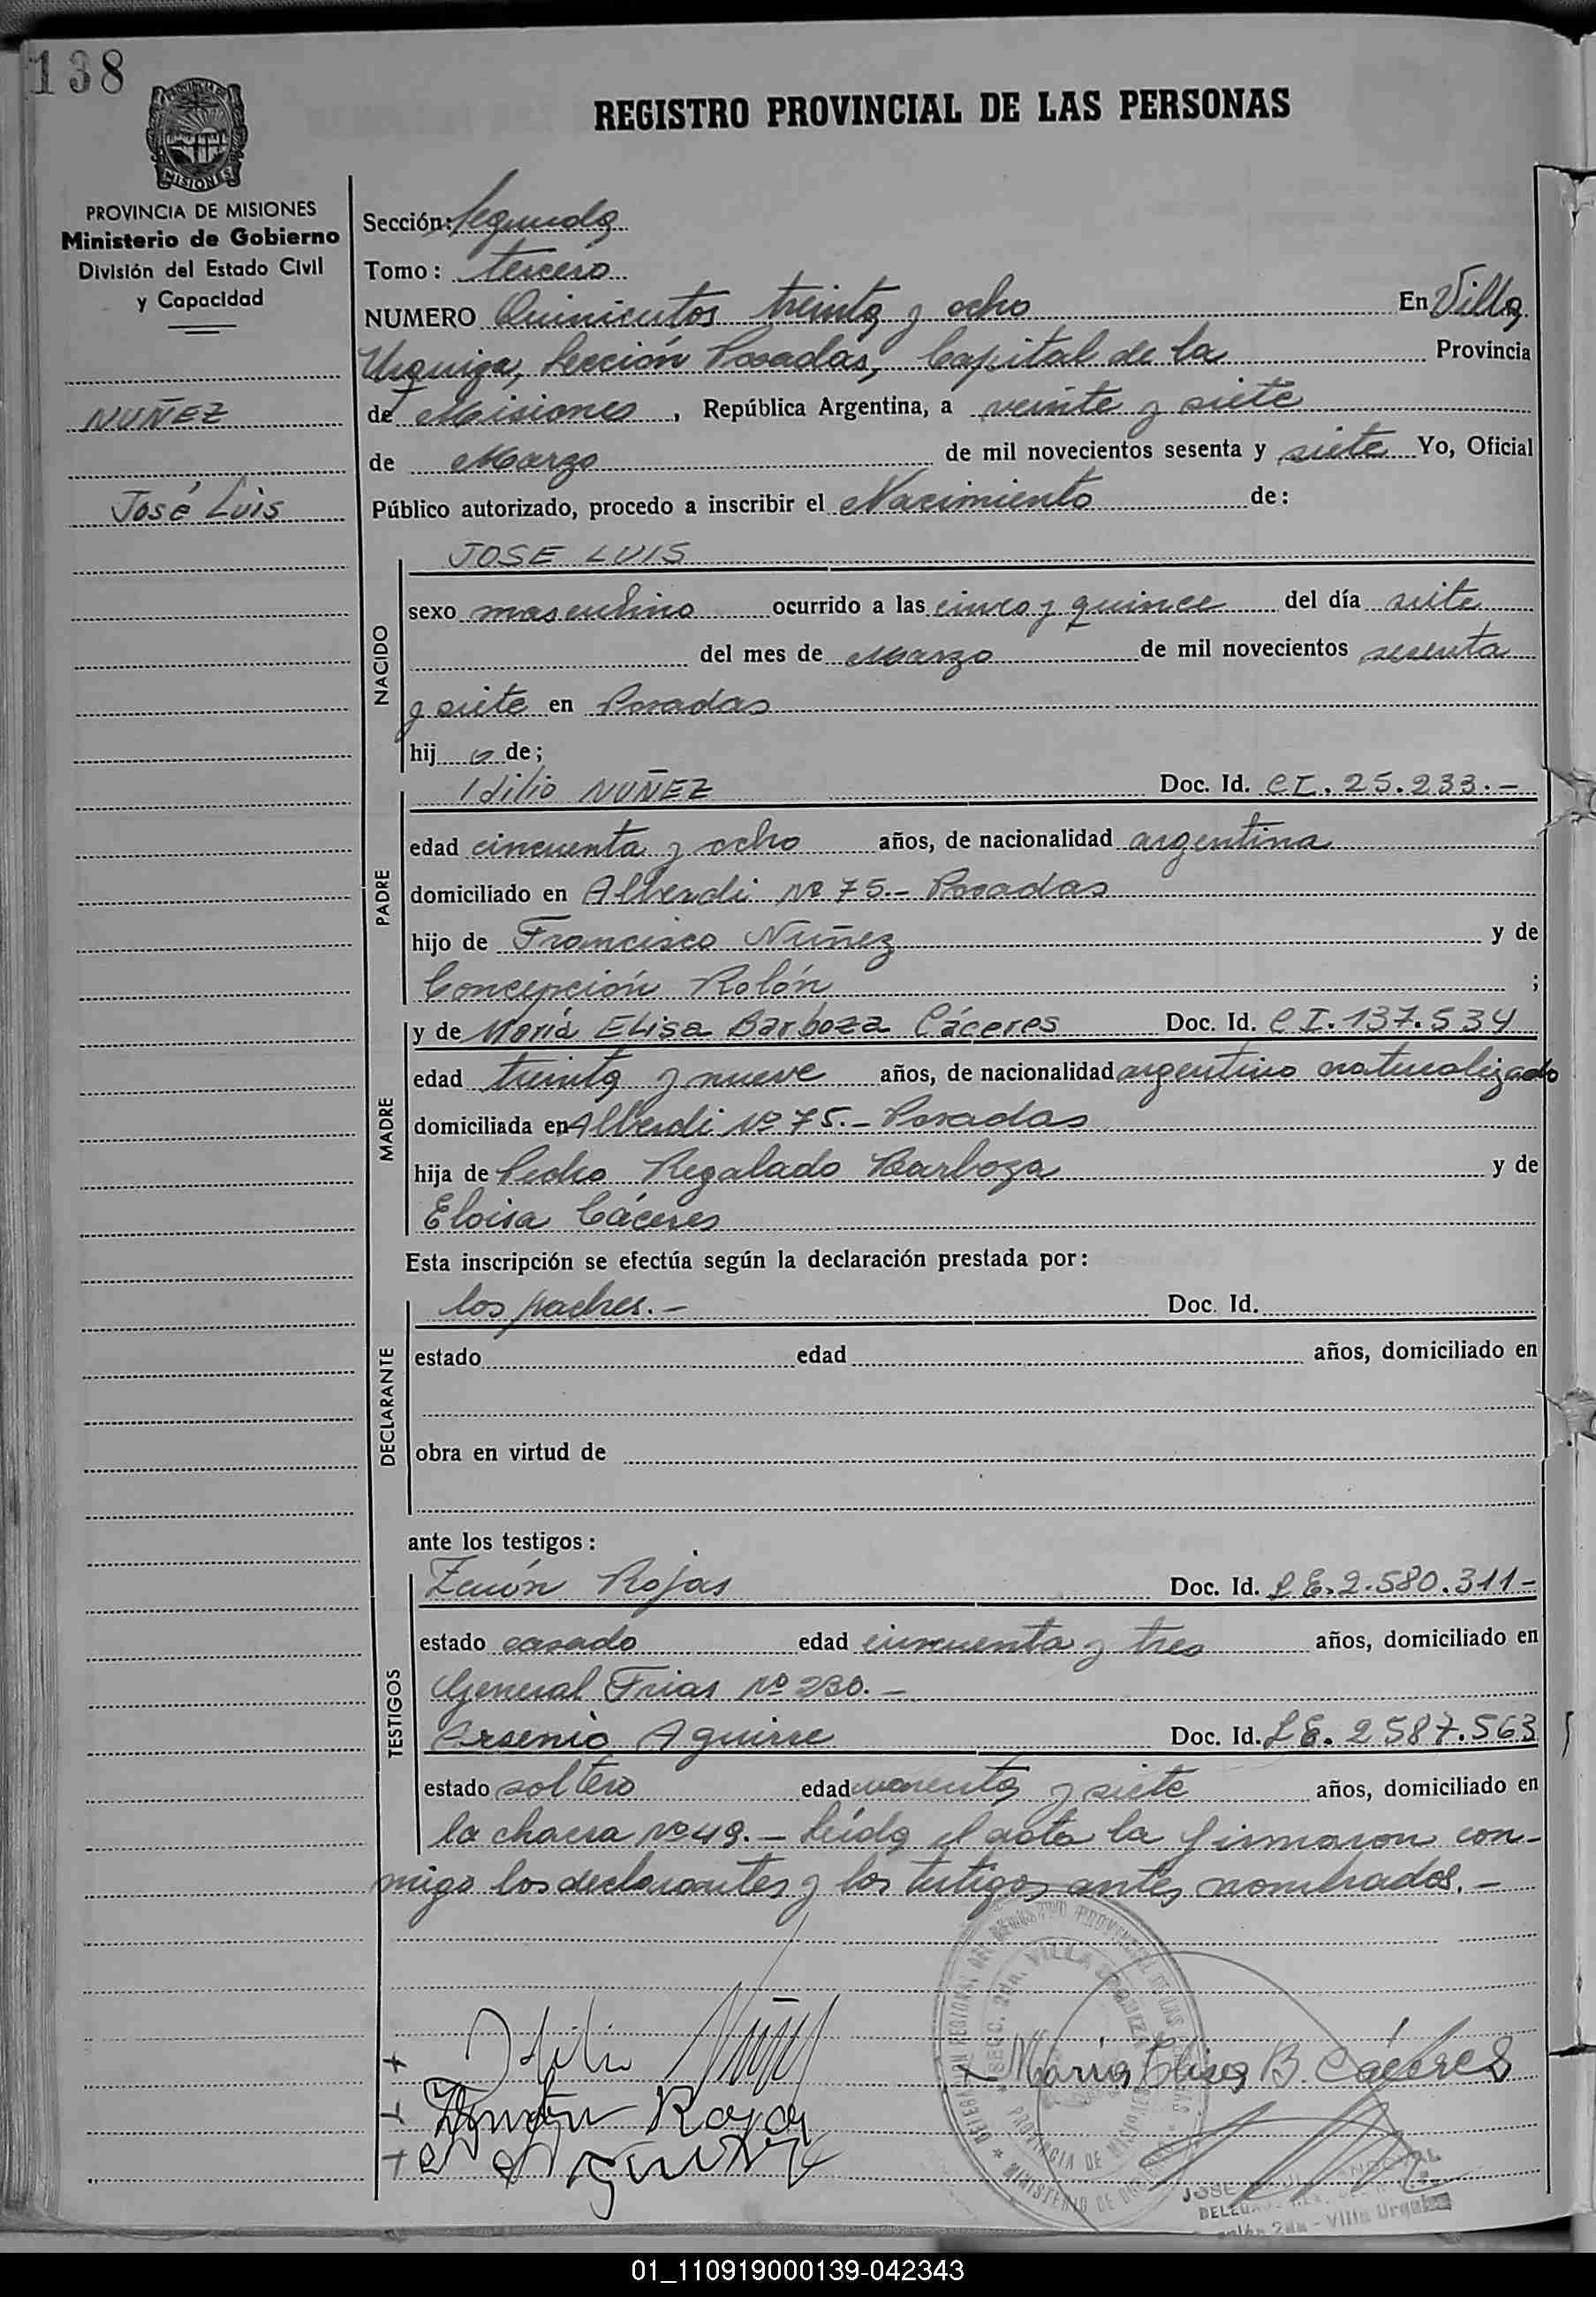 138
REGISTRO PROVINCIAL DE LAS PERSONAS
MISIONES
PROVINCIA DE MISIONES
Ministerio de Gobierno
División del Estado Civil
y Capacidad
NUÑEZ
José Luis
Sección: Segunda
Tomo: tercero
NUMERO Quinientos treinta y ocho En Villa
Urquiza, Sección Posadas, Capital de la Provincia
de Misiones, República Argentina, a veinte y siete
de Marzo de mil novecientos sesenta y siete Yo, Oficial
Público autorizado, procedo a inscribir el Nacimiento de:
NACIDO
JOSE LUIS
sexo masculino ocurrido a las cinco y quince del día siete
del mes de Marzo de mil novecientos sesenta
y siete en Posadas
hij o de;
PADRE
Idilio NUÑEZ Doc. Id. CI. 25.233.-
edad cincuenta y ocho años, de nacionalidad argentina
domiciliado en Alberdi Nº 75.- Posadas
hijo de Francisco Nuñez y de
Concepción Rolón ;
MADRE
y de María Elisa Barboza Cáceres Doc. Id. CI. 137.534
edad treinta y nueve años, de nacionalidad argentino naturalizado
domiciliada en Alberdi Nº 75.- Posadas
hija de Pedro Regalado Barboza y de
Eloisa Cáceres
Esta inscripción se efectúa según la declaración prestada por:
DECLARANTE
los padres.- Doc. Id.
estado edad años, domiciliado en
obra en virtud de
ante los testigos:
TESTIGOS
Zenón Rojas Doc. Id. LE. 2.580.311-
estado casado edad cincuenta y tres años, domiciliado en
General Frias Nº 230.-
Arsenio Aguirre Doc. Id. LE. 2587.563
estado soltero edad cuarenta y siete años, domiciliado en
la chacra nº 49.- Leída el acta la firmaron con-
migo los declarantes y los testigos antes nombrados.-
Idilio Nuñez
María Elisa B. Cáceres
Zenón Rojas
A Aguirre
SECC. 2da. VILLA URQUIZA
PROVINCIA DE MISIONES
JOSE
2da - Villa Urquiza
01_110919000139-042343